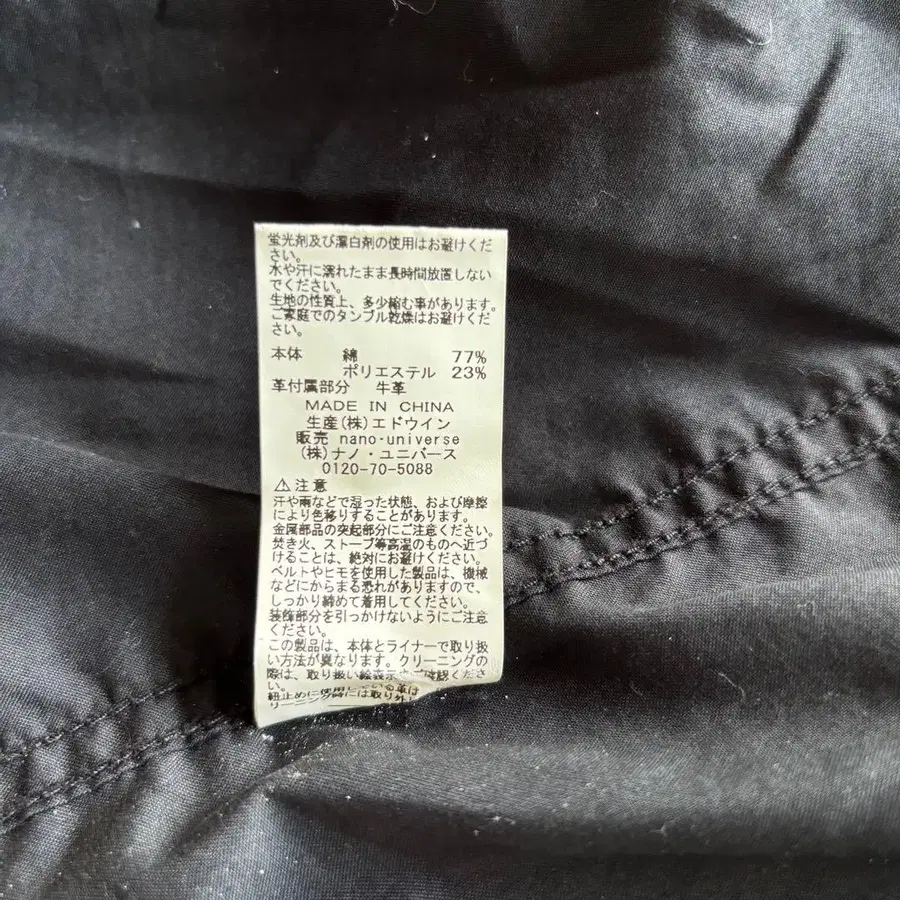 蛍光剤及び漂白剤の使用はお避けくだ
さい。
水や汗に濡れたまま長時間放置しない
でください。
生地の性質上、多少縮む事があります。
ご家庭でのタンブル乾燥はお避けくだ
さい。
本体 綿 77%
ポリエステル 23%
革付属部分 牛革
MADE IN CHINA
生産(株)エドウイン
販売 nano・universe
(株)ナノ・ユニバース
0120-70-5088
⚠注意
汗や雨などで湿った状態、および摩擦
により色移りすることがあります。
金属部品の突起部分にご注意ください。
焚き火、ストーブ等高温のものへ近づ
けることは、絶対にお避けください。
ベルトやヒモを使用した製品は、機械
などにからまる恐れがありますので、
しっかり締めて着用してください。
装飾部分を引っかけないようにご注意
ください。
この製品は、本体とライナーで取り扱
い方法が異なります。クリーニングの
際は、取り扱い絵表示をご確認くださ
い。
紐止めに使用している革は
リーニング時には取り外し